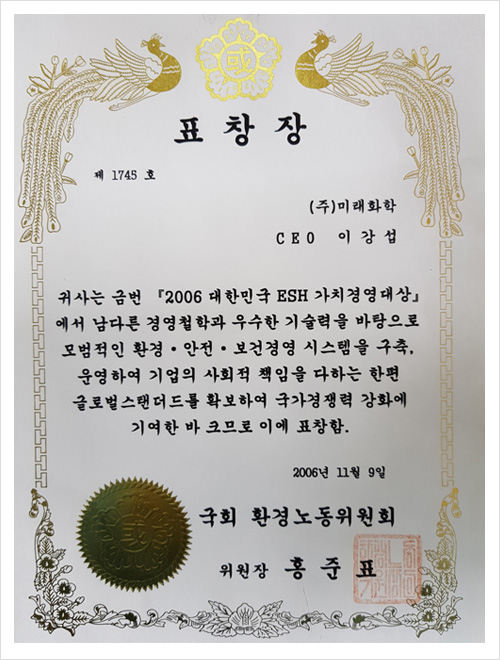 國
표창장
제 1745 호
(주)미래화학
CEO 이강섭
귀사는 금번 『2006 대한민국 ESH 가치경영대상』
에서 남다른 경영철학과 우수한 기술력을 바탕으로
모범적인 환경・안전・보건경영 시스템을 구축,
운영하여 기업의 사회적 책임을 다하는 한편
글로벌스탠더드를 확보하여 국가경쟁력 강화에
기여한 바 크므로 이에 표창함.
2006년 11월 9일
국회 환경노동위원회
위원장 홍준표